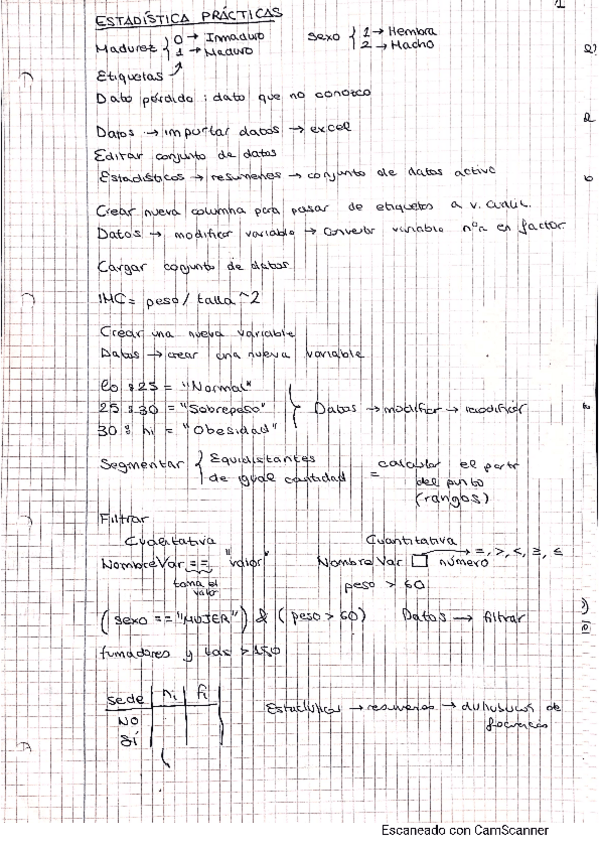 1
ESTADÍSTICA PRÁCTICAS
Madurez { 0 → Inmaduro
1 → Maduro
Sexo { 1 → Hembra
2 → Macho
Etiquetas
Dato pérdido : dato que no conozco
Datos → importar datos → excel
Editar conjunto de datos
Estadísticos → resumenes → conjunto de datos activo
Crear nueva columna para pasar de etiquetas a v. cualit.
Datos → modificar variable → convertir variable nºa en factor
Cargar conjunto de datos
IMC = peso / talla ^2
Crear una nueva variable
Datos → crear una nueva variable
lo : 25 = "Normal"
25 : 30 = "Sobrepeso"
30 : hi = "Obesidad"
} Datos → modificar → recodificar
Segmentar { Equidistantes
de igual cantidad
= calcular el
del punto
(rangos)
Filtrar
Cualitativa
NombreVar == "valor"
toma el
valor
Cuantitativa
NombreVar □ número → =, >, <, ≥, ≤
peso > 60
(sexo == "MUJER") & (peso > 60) Datos → filtrar
fumadores y > 150
sede | ni | fi
NO
SÍ
Estadísticos → resumenes → de
frecuencias
Escaneado con CamScanner